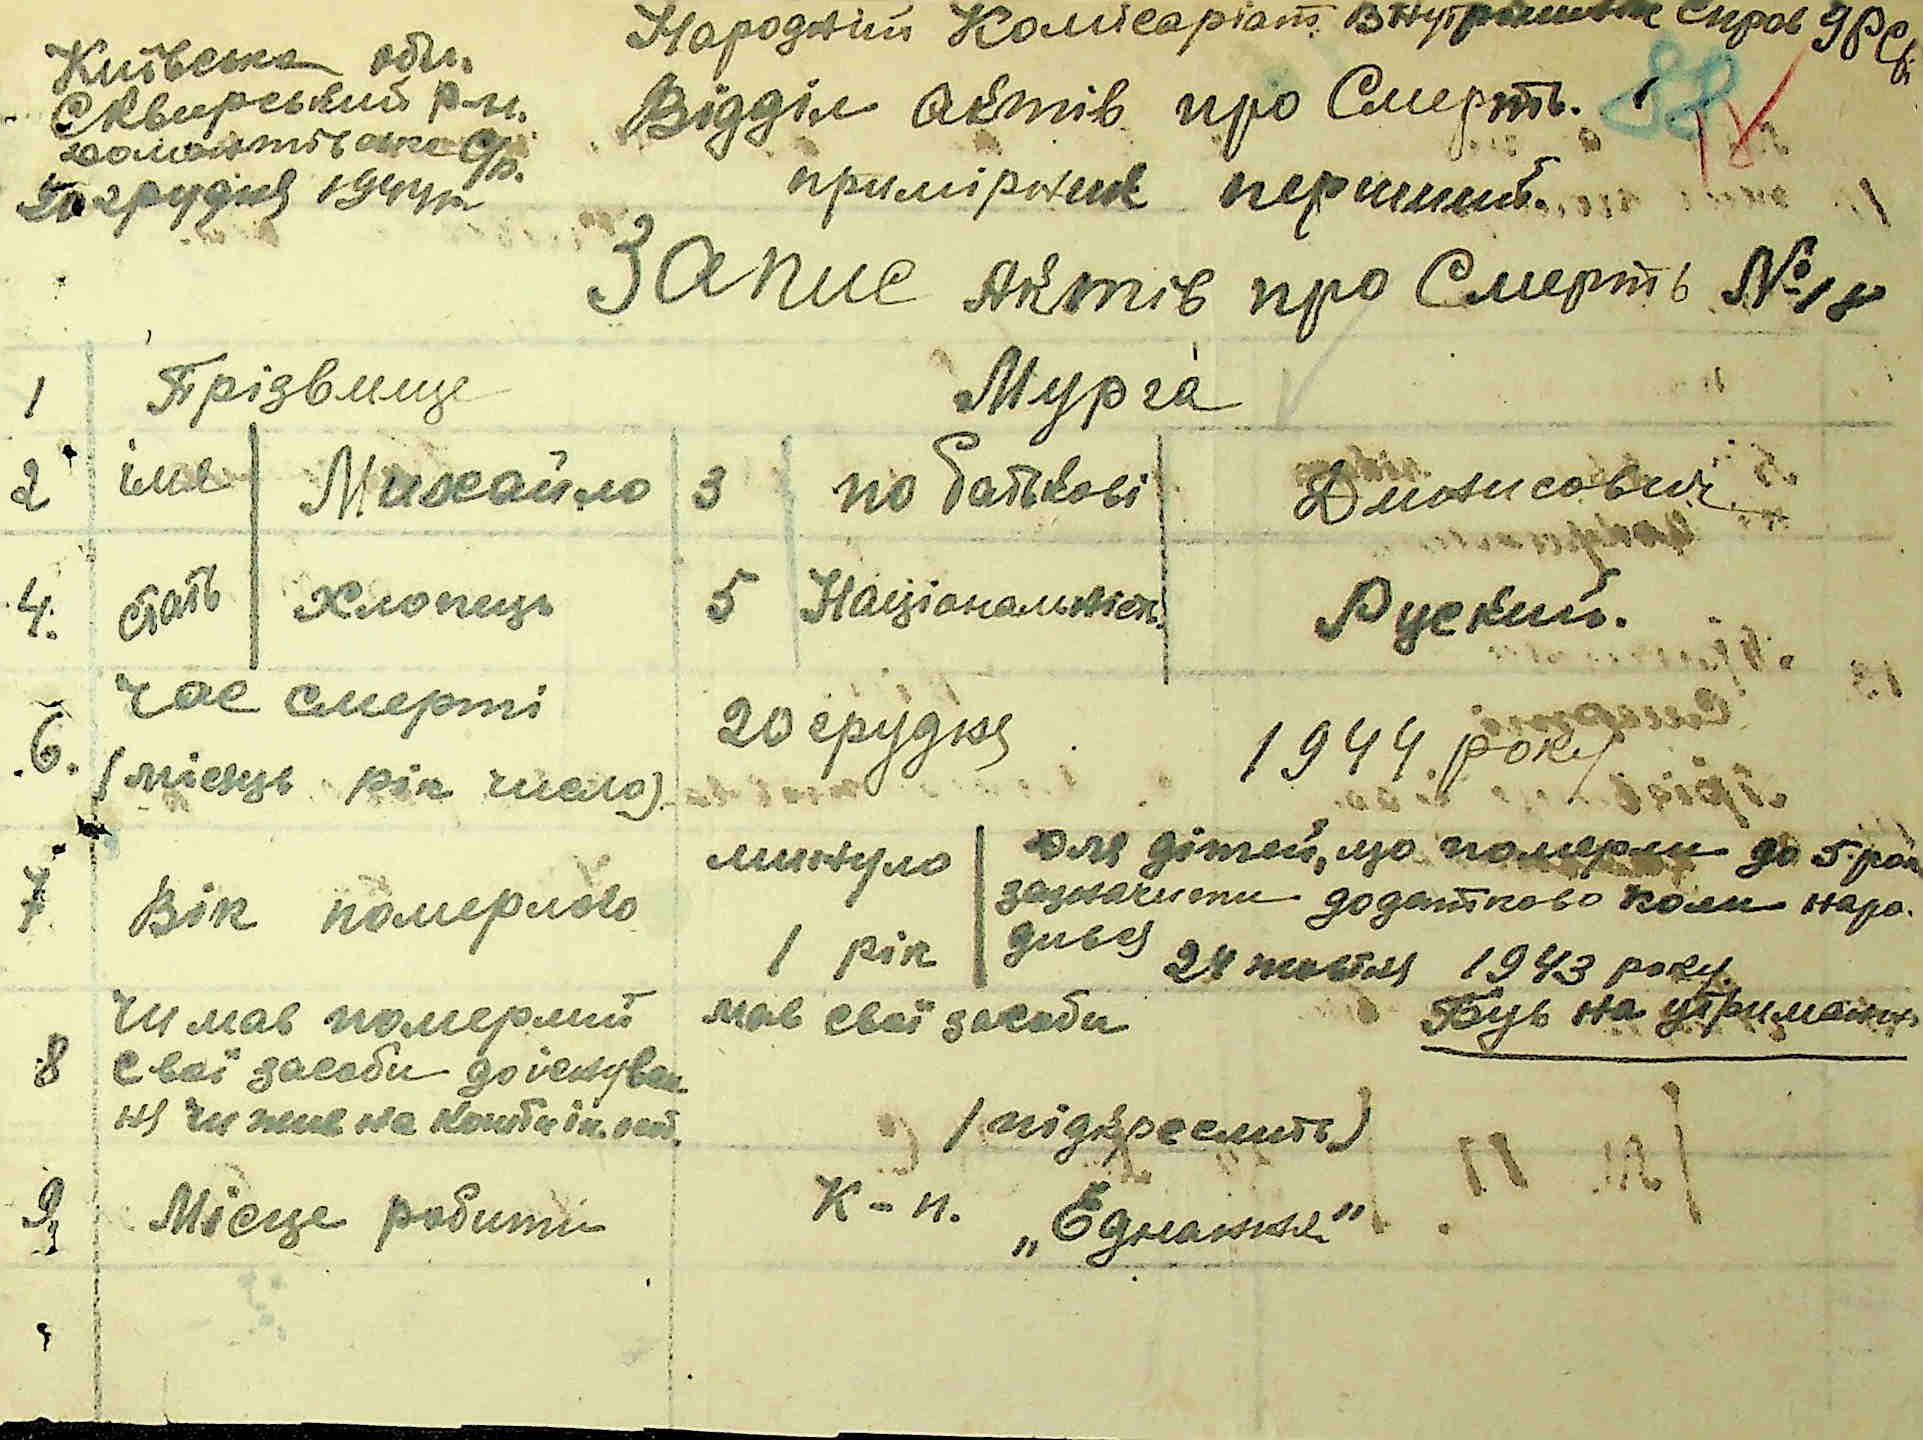 Народній Комісаріат Внутрішніх Справ УРСР
Київська обл.
Сквирський р-н.
Відділ актів про Смерть. 88
примірник перший.
грудня 1944 р
Запис Актів про Смерть № 18
1 Прізвище Мурга
2 імя Михайло 3 по батькові Дионисович
4. стать хлопець 5 Національність Руский.
6. Час смерті 20 грудня 1944 року
(місяць рік число)
7 Вік померлого минуло 1 рік
для дітей, що померли до 5 рок
зазначити додатково коли наро-
дився 24 жовтня 1943 року.
8 Чи мав померлий мав свої засоби Був на утриманні
свої засоби до існуван
ня чи жив на кошти ін. осіб.
(підкреслить)
9 Місце роботи к-п. „Єднання"